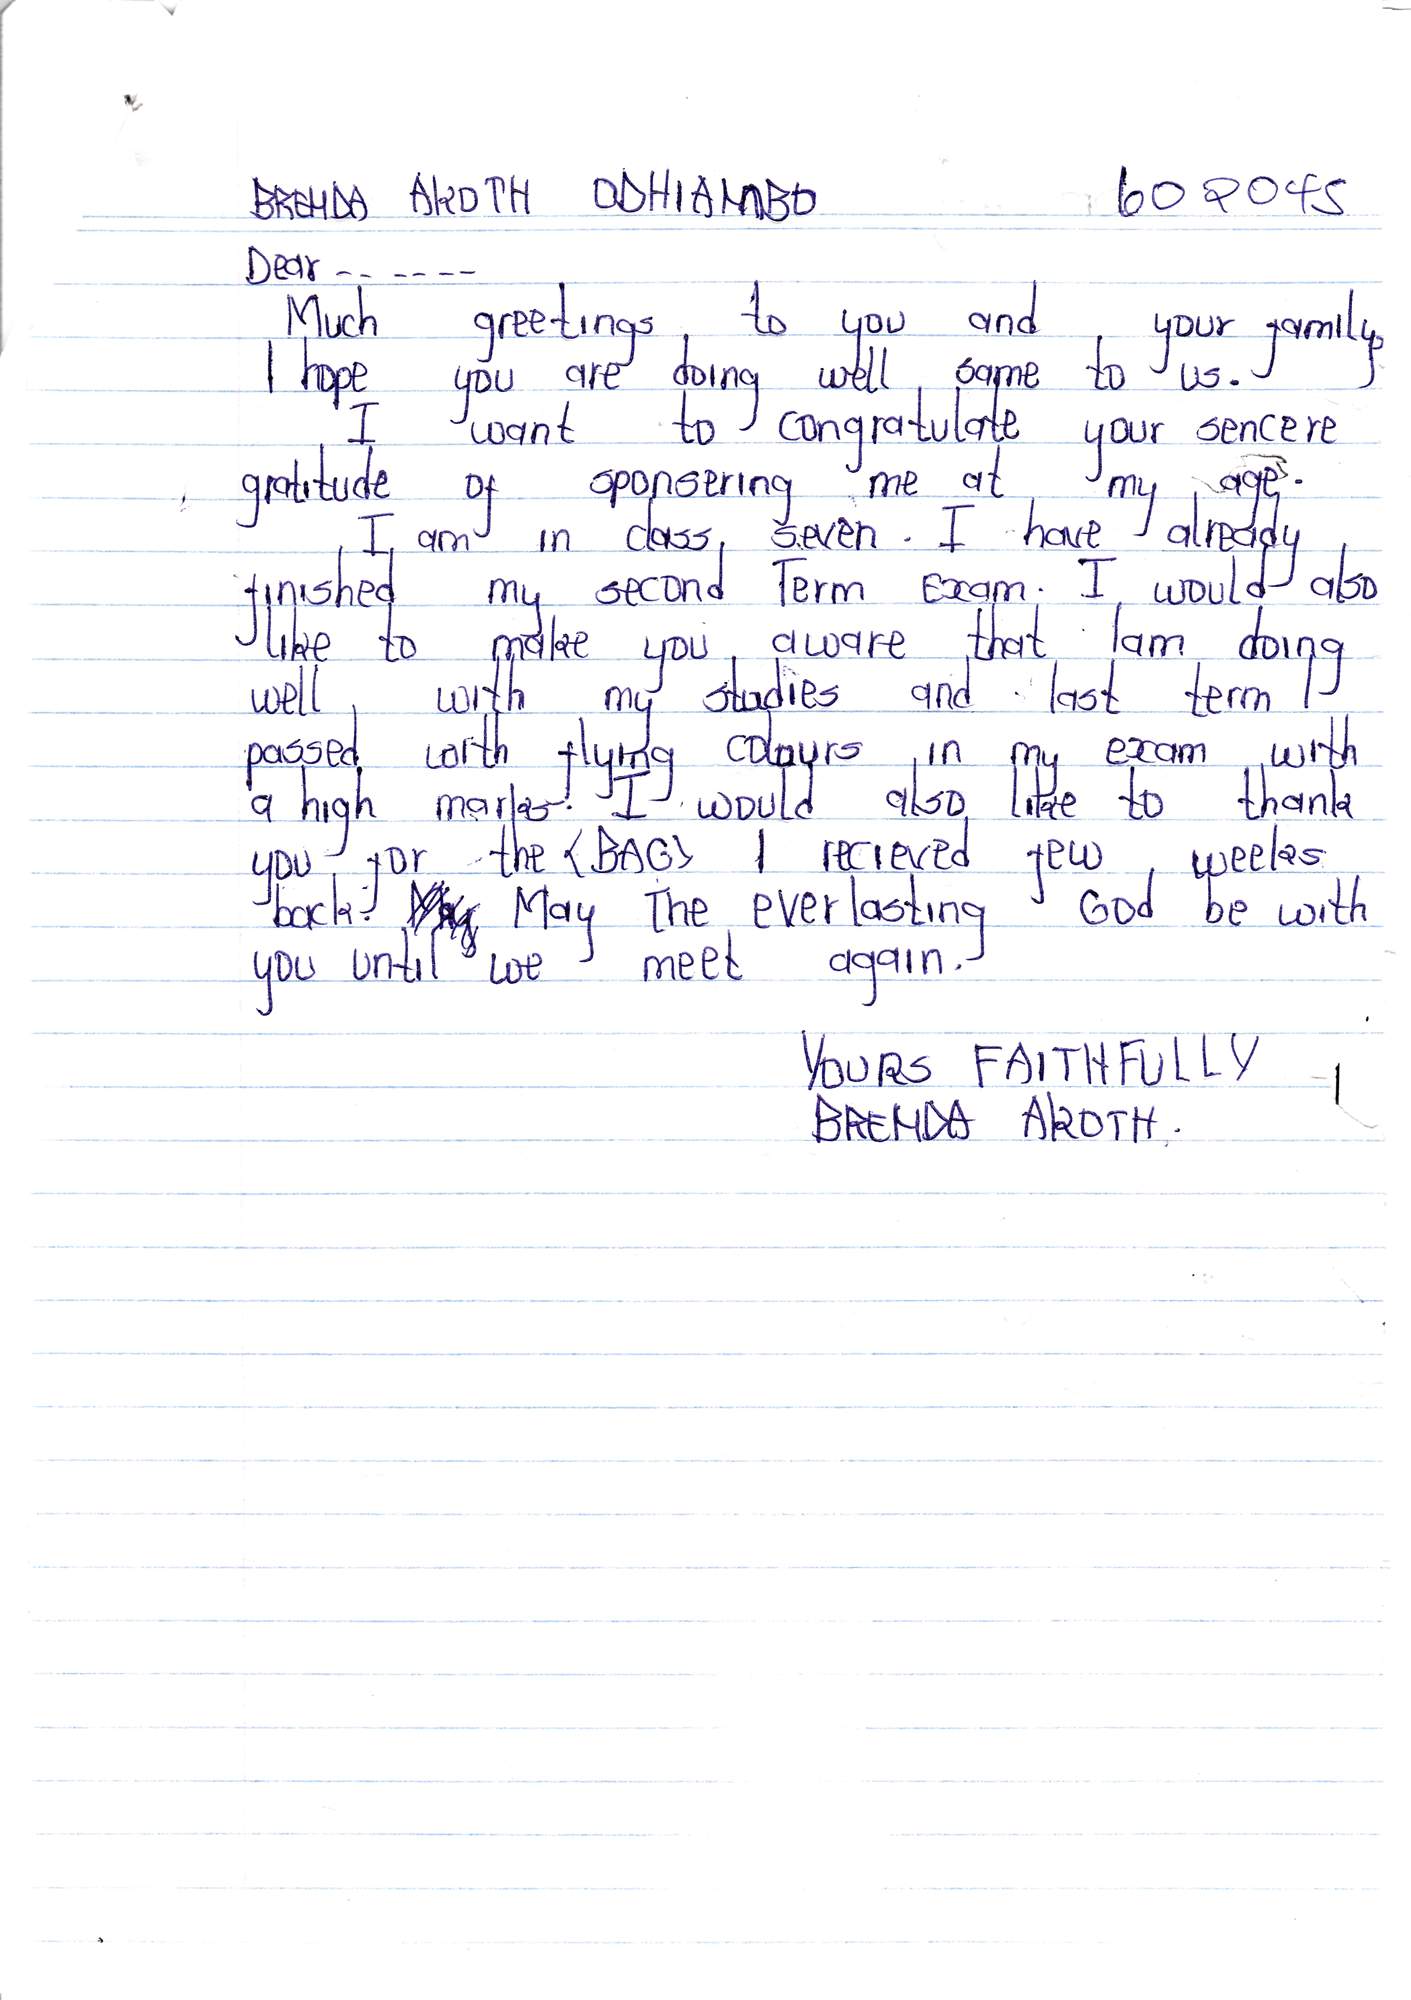 BRENDA AKOTH ODHIAMBO 602045
Dear -- ----
Much greetings to you and your family,
I hope you are doing well same to us.
I want to congratulate your sencere
gratitude of sponsering me at my age.
I am in class seven. I have already
finished my second Term Exam. I would also
like to make you aware that Iam doing
well with my studies and last term I
passed with flying colours in my exam with
a high marks. I would also like to thank
you for the <BAG> I recieved few weeks
back. May The everlasting God be with
you until we meet again.
YOURS FAITHFULLY
BRENDA AKOTH.